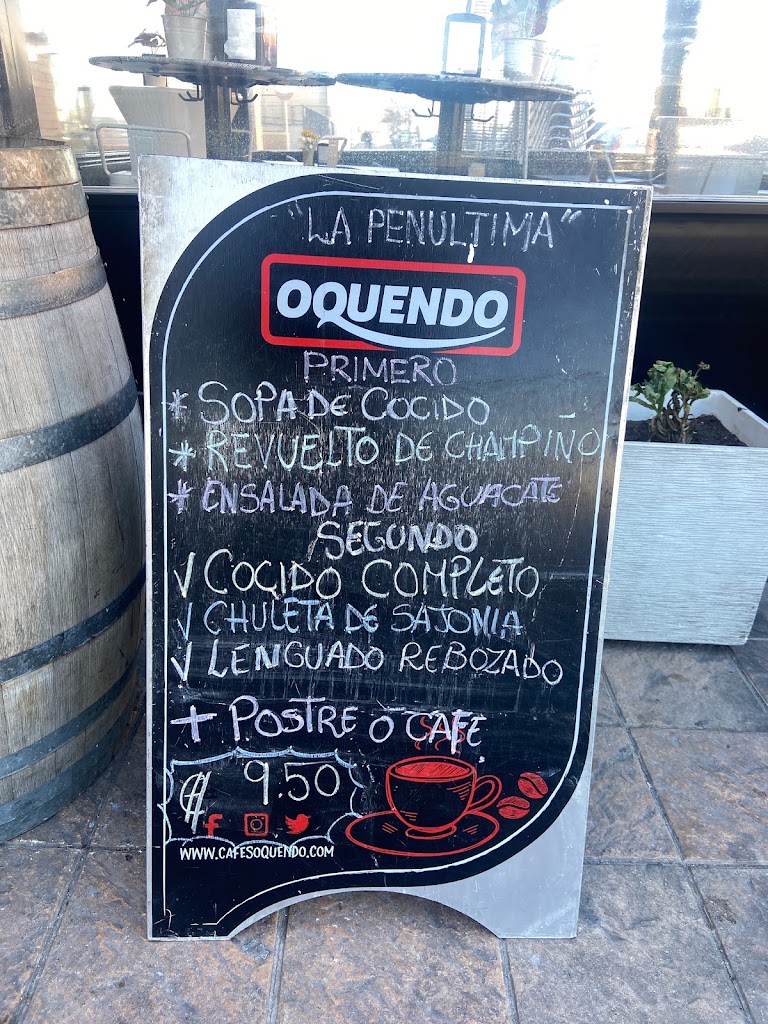 "LA PENULTIMA"
OQUENDO
PRIMERO
* SOPA DE COCIDO
* REVUELTO DE CHAMPIÑO
* ENSALADA DE AGUACATE
SEGUNDO
√ COCIDO COMPLETO
√ CHULETA DE SAJONIA
√ LENGUADO REBOZADO
+ POSTRE O CAFE
9.50
WWW.CAFESOQUENDO.COM